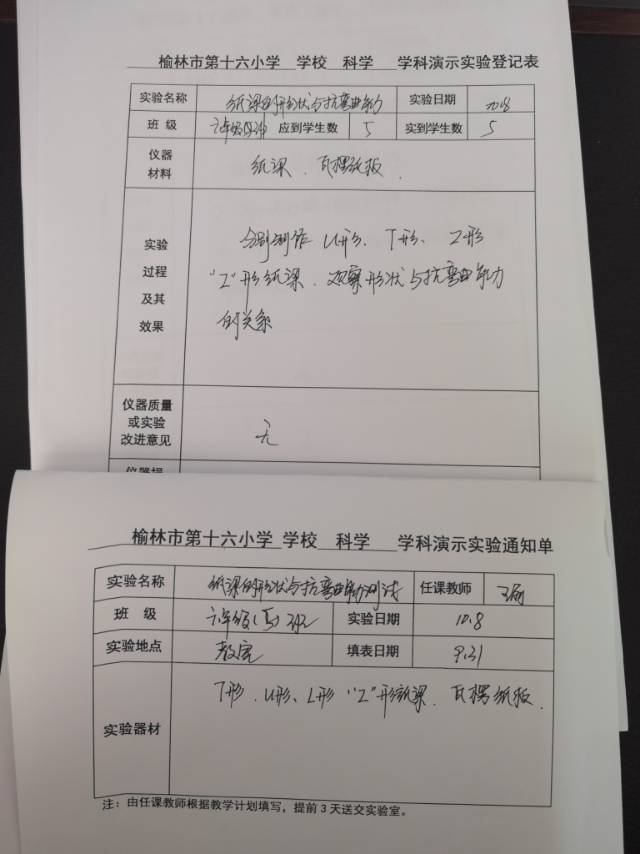 榆林市第十六小学 学校 科学 学科演示实验登记表
实验名称 纸梁的形状与抗弯曲能力 实验日期 10.8
班 级 六年级 应到学生数 5 实到学生数 5
仪器
材料
纸梁、瓦楞纸板.
实验
过程
及其
效果
分别制作 U形、T形、Z形
"工"形纸梁、观察形状与抗弯曲能力
的关系
仪器质量
或实验
改进意见
无
榆林市第十六小学 学校 科学 学科演示实验通知单
实验名称 纸梁的形状与抗弯曲能力测试 任课教师
班 级 六年级(五)班 实验日期 10.8
实验地点 教室 填表日期 9.31
实验器材
T形、U形、L形"工"形纸梁、瓦楞纸板.
注：由任课教师根据教学计划填写，提前3天送交实验室。